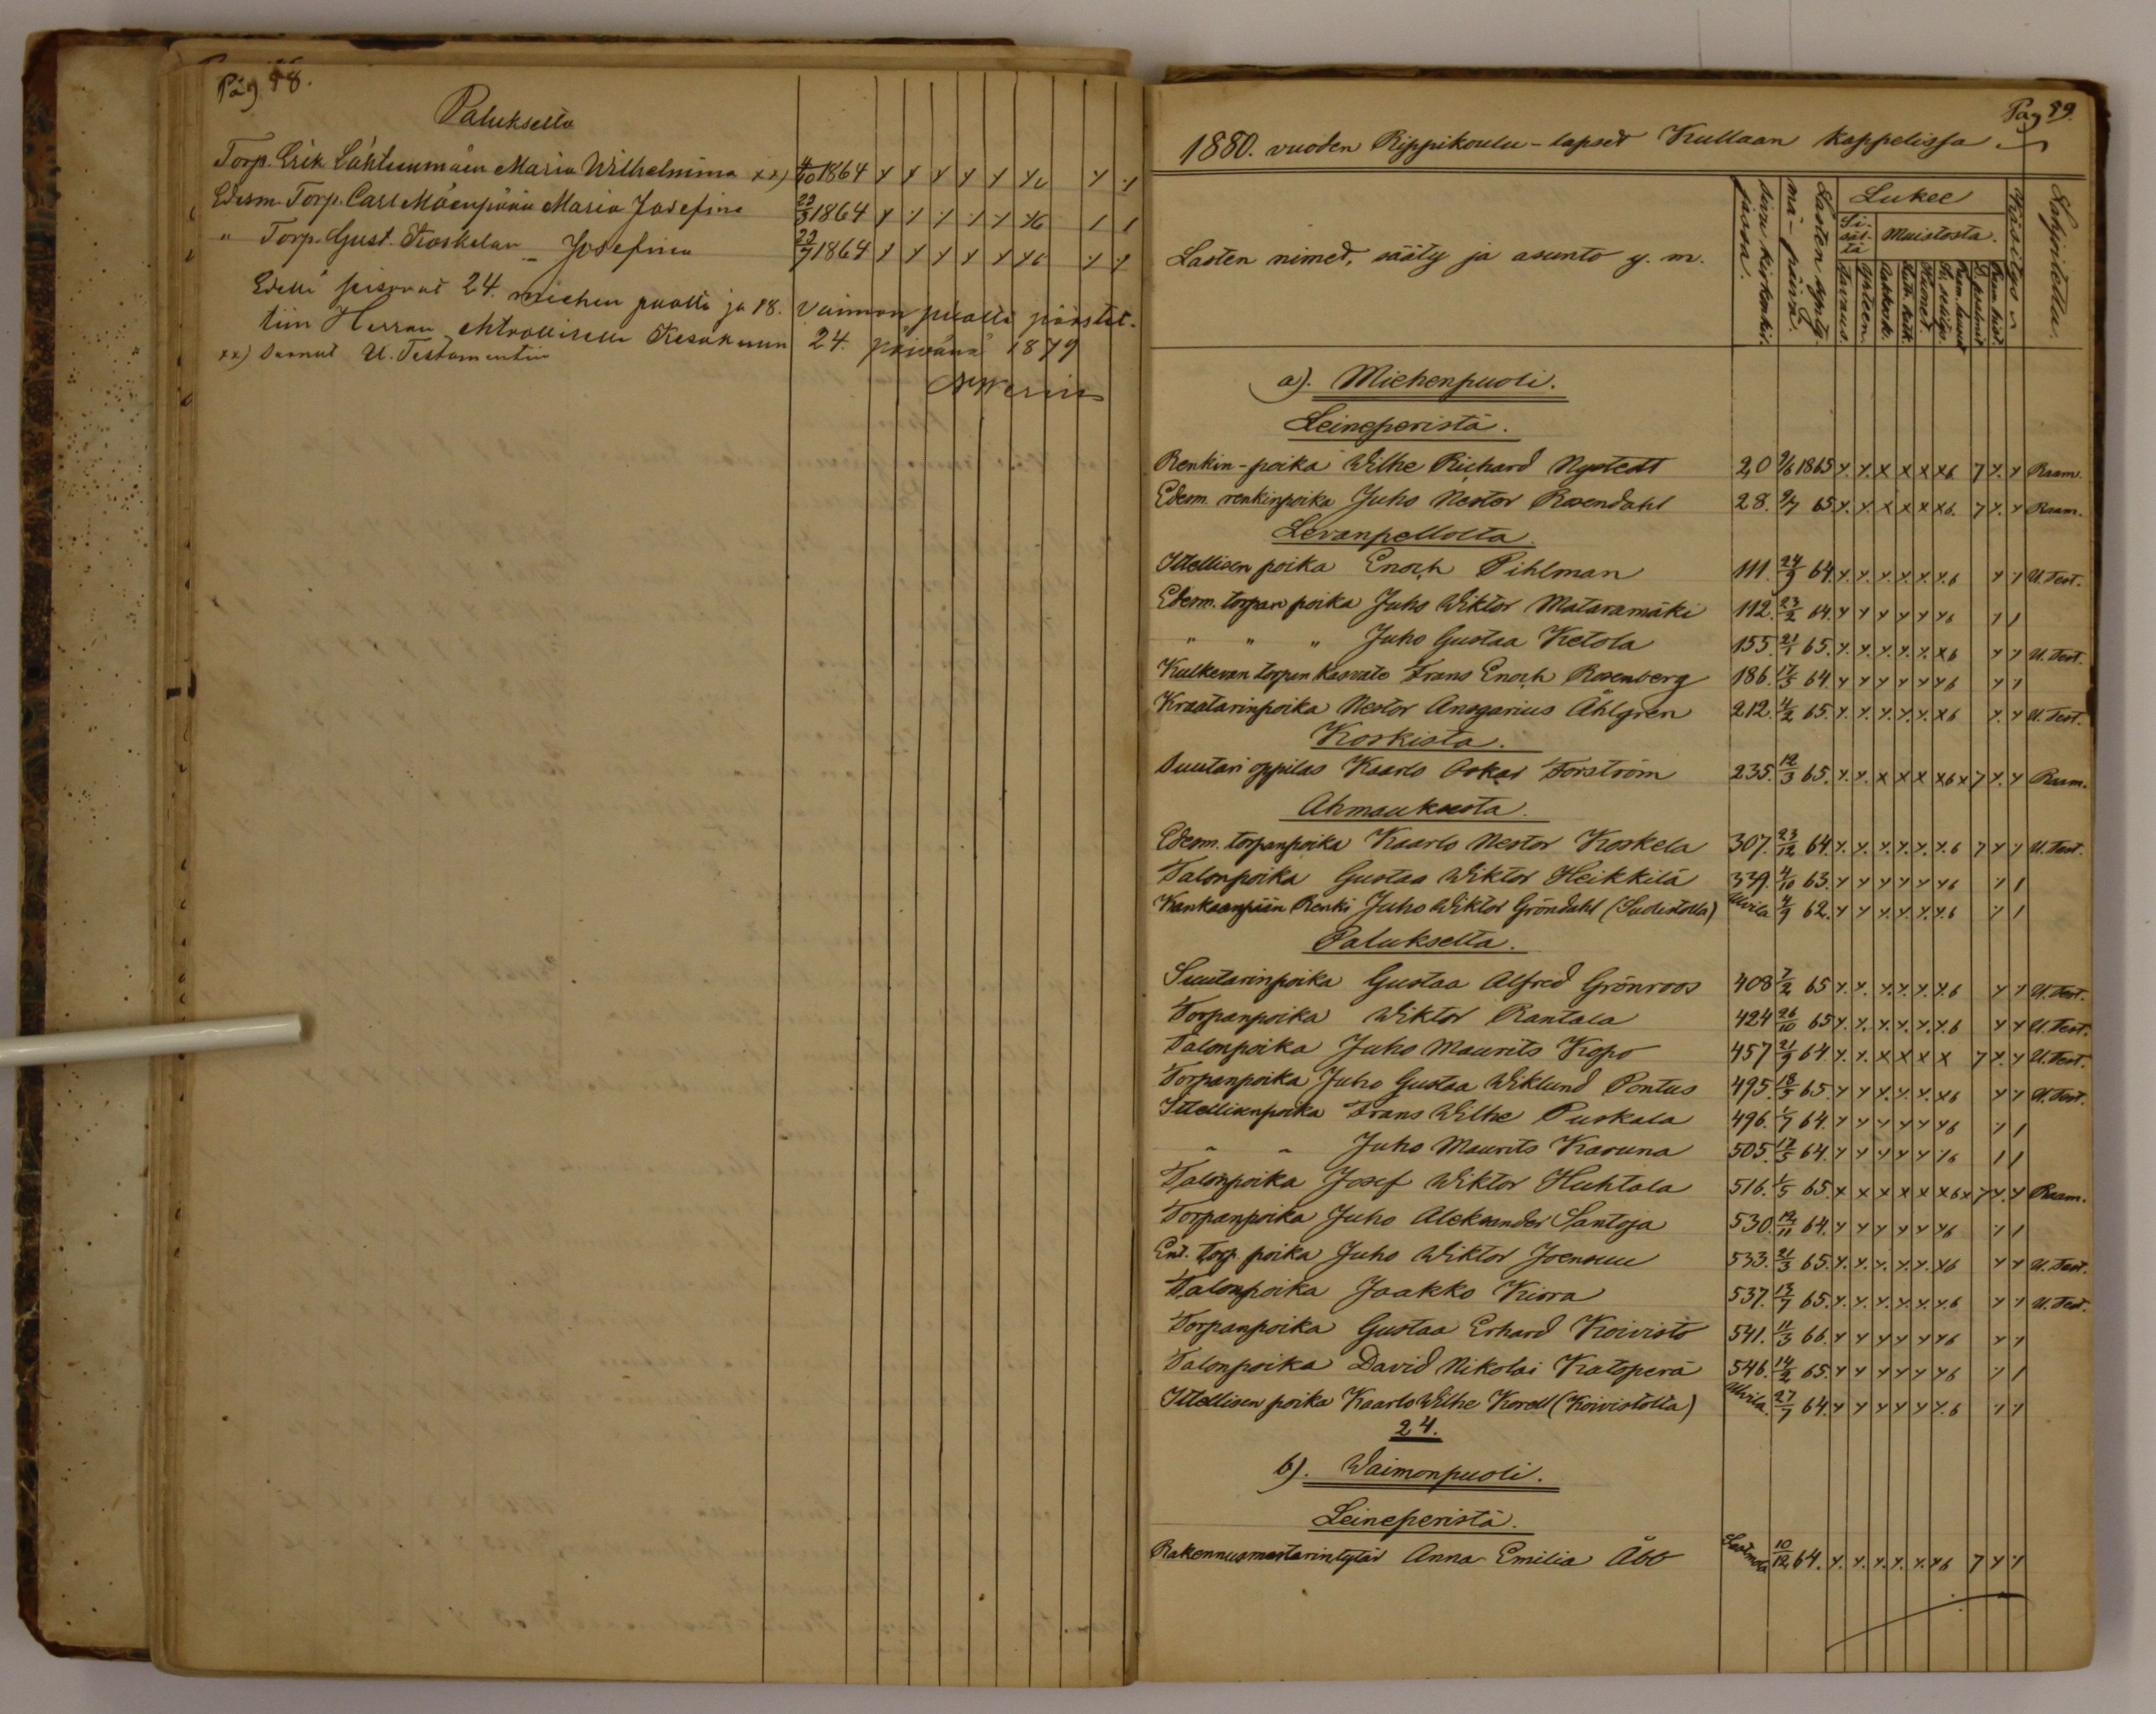 Pag 88.
Palukselta
Torp. Erik Lähteenmäen Maria Wilhelmina xx) 4/10 1864 x x x x x x6 x x
Edesm. Torp. Carl Mäenpään Maria Josefina 22/3 1864 x x x x x x6 1 1
" Torp. Gust. Koskelan – Josefina 22/7 1864 x x x x x x6 x x
24. miehen puolta ja 18. vaimon puolta päästet-
tiin Herran ehtoolliselle Kesäkuun 24. päivänä 1879
xx) saanut U. Testamentin
Pag 89.
1880. vuoden Rippikoulu-lapset Kullaan kappelissa
Lasten nimet, sääty ja asunto y. m.
Sivu kirkonkirjassa.
Lasten synty-mä-päivä.
Lukee
Sisältä
Muistosta.
Käsitys
Lahjoitettu.
a). Miehenpuoli.
Leineperistä.
Renkin-poika Wilhe Richard Nystedt 20 9/6 1865 x. x. x x x x6. 7 x. x Raam.
Edesm. renkinpoika Juho Nestor Rosendahl 28. 9/7 65 x. x. x x x x6. 7 x. x Raam.
Levanpellolta
Itellisen poika Enoch Pihlman 111. 24/9 64. x. x. x. x. x. x.6 x x U. Test.
Edesm. torpan poika Juho Wiktor Mataramäki 112. 23/2 64. x x x x x x6 1 1
" " " Juho Gustaa Ketola 155. 21/1 65. x. x. x. x. x. x6 x x U. Test.
Kulkevan torpan kasvato Frans Enoch Rosenberg 186. 17/3 64. x x x x x x6 x 1
Kraatarinpoika Nestor Ansgarius Åhlgren 212. 4/2 65. x. x. x. x. x. x6 x. x U. Test.
Koskista.
Suutari oppilas Kaarlo Oskar Forström 235. 12/3 65. x. x. x x x x6 x 7 x. x Raam.
Ahmauksesta.
Edesm. torpanpoika Kaarlo Nestor Koskela 307. 23/12 64. x. x. x. x. x. x.6 7 x x U. Test.
Talonpoika Gustaa Wiktor Heikkilä 339. 4/10 63. x x x x x x6 1 1
Kankaanpään Renki Juho Wiktor Gröndahl Ulvila 4/9 62. x x x. x. x. x.6 1 1
Palukselta.
Suutarinpoika Gustaa Alfred Grönroos 408 7/2 65 x. x. x. x. x. x.6 x x U. Test.
Torpanpoika Wiktor Rantala 424 26/10 65 x. x. x. x. x. x.6 x x U. Test.
Talonpoika Juho Maurits Kopo 457 21/9 64. x. x. x x x x 7 x. x U. Test.
Torpanpoika Juho Gustaa Wiklund Pontus 495. 18/5 65. x x x. x. x. x6 x x U. Test.
Itellisenpoika Frans Wilhe Puskala 496. 1/7 64. x x x x x x6 1 1
" " Juho Maurits Karuna 505. 17/3 64. x x x x x x6 1 1
Talonpoika Josef Wiktor Huhtala 516. 1/5 65. x x x x x x6 x 7 x. x Raam.
Torpanpoika Juho Aleksander Santoja 530. 12/11 64. x x x x x x6 1 1
Ent. torp. poika Juho Wiktor Joensuu 533. 21/3 65. x. x. x. x. x. x6 x x U. Test.
Talonpoika Jaakko Kiora 537. 13/7 65. x. x. x. x. x. x.6 x x U. Test.
Torpanpoika Gustaa Erhard Koivisto 541. 11/3 66. x x x x x x6 x x
Talonpoika David Nikolai Katoperä 546. 14/2 65. x x x x x x6 1 1
Itellisen poika Kaarlo Wilhe Korell (Koivistolta) Ulvila. 27/7 64. x x x x x x.6 x x
24.
b). Waimonpuoli.
Leineperistä.
Rakennusmestarintytär Anna Emilia Åbb 10/12 64. x. x. x. x. x. x6 7 x x